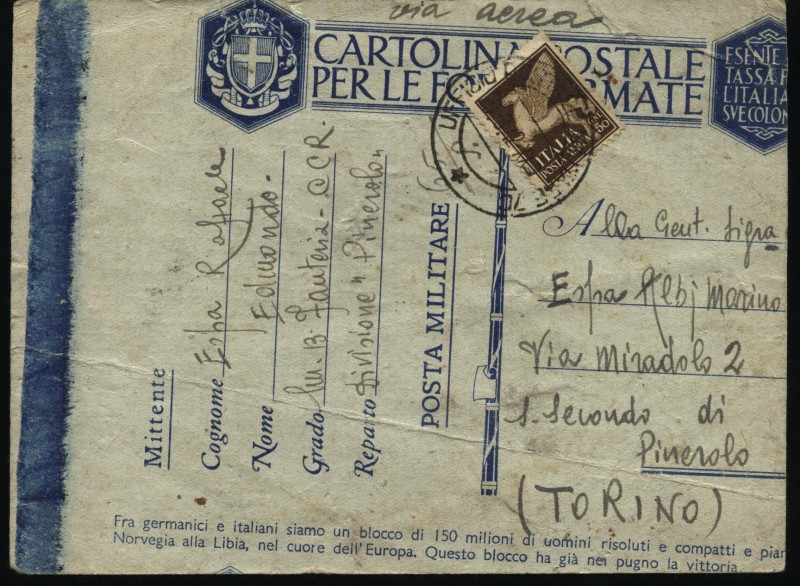 via aerea
CARTOLINA POSTALE
PER LE F RMATE
ESENTE
TASSA P
L'ITALIA
SVE COLON
ITALIA
POSTA AEREA
UFFICIO
Mittente
Cognome Espa Raffaele
Nome Edmondo.
Grado Fanteria - CCR.
Reparto Divisione "Pinerolo"
POSTA MILITARE
Alla Gent. Sigra
Espa Albj Marino
Via Miradolo 2
S. Secondo di
Pinerolo
(TORINO)
Fra germanici e italiani siamo un blocco di 150 milioni di uomini risoluti e compatti e pian
Norvegia alla Libia, nel cuore dell'Europa. Questo blocco ha già nel pugno la vittoria.